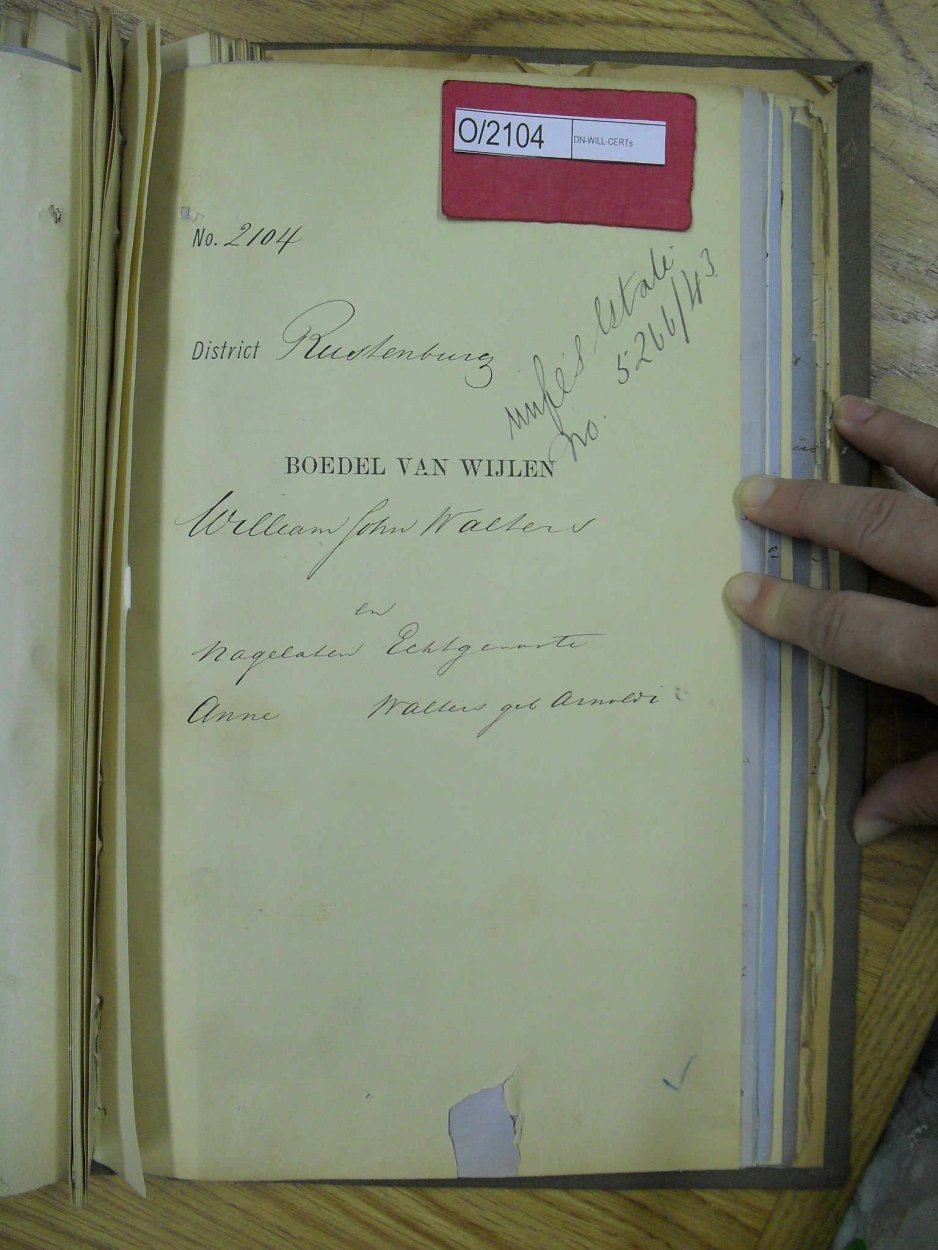 O/2104 DN-WILL-CERTs
No. 2104
District Rustenburg
wife's Estate
No. 5266/43
BOEDEL VAN WIJLEN
William John Walters
en
Nagelaten Echtgenoote
Anne Walters geb Arnoldi